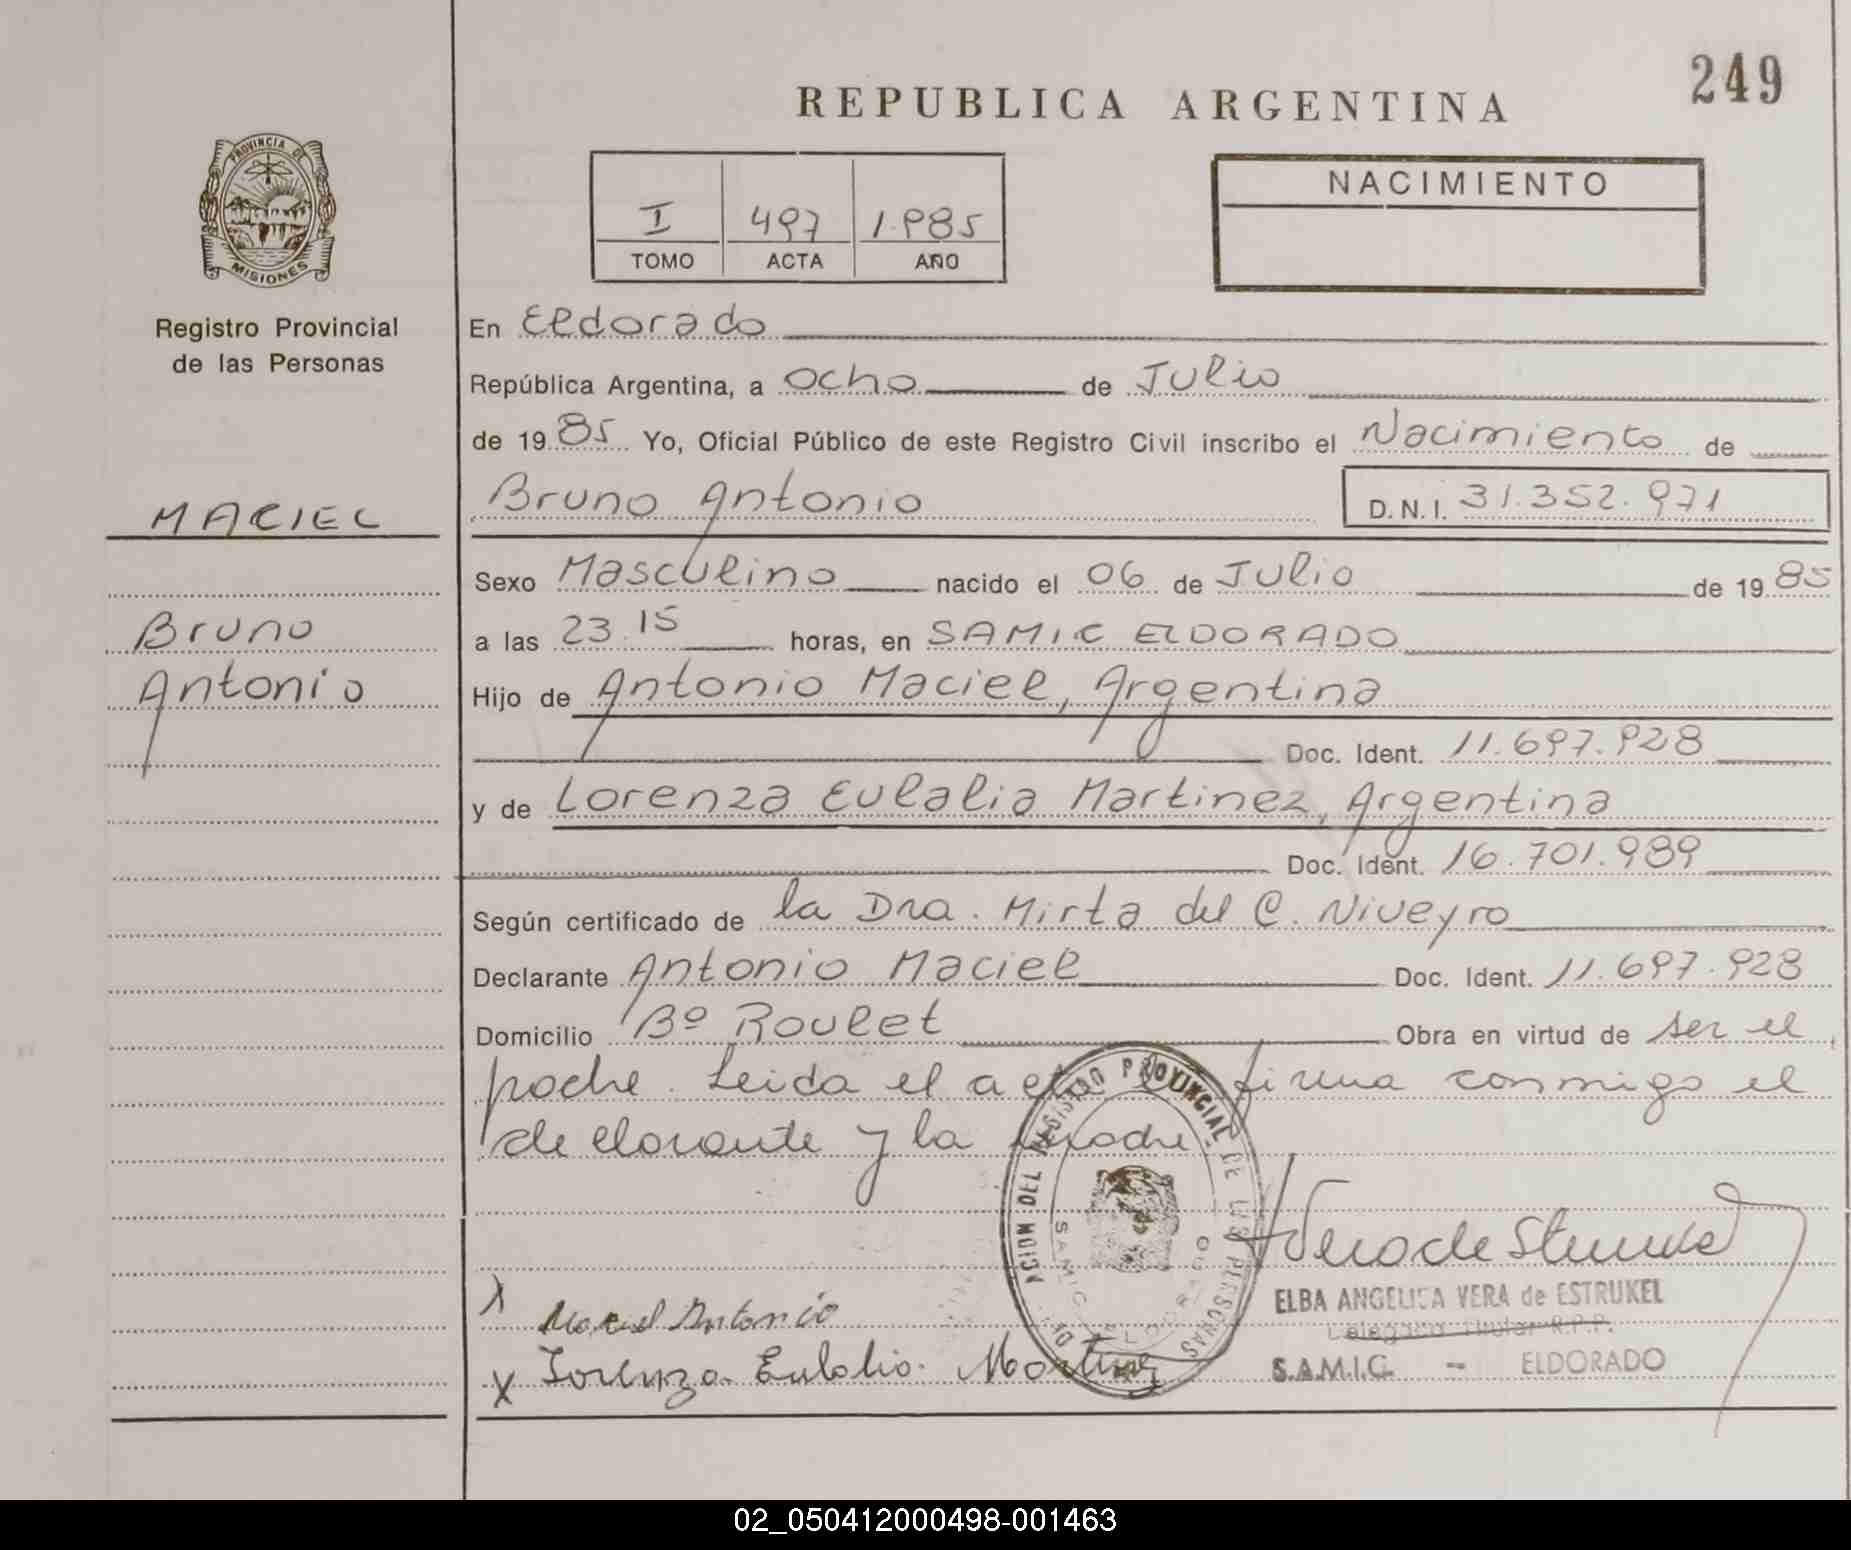 249
REPUBLICA ARGENTINA
PROVINCIA DE
MISIONES
Registro Provincial
de las Personas
I 497 1.985
TOMO ACTA AÑO
NACIMIENTO
En Eldorado
República Argentina, a ocho de Julio
de 1985 Yo, Oficial Público de este Registro Civil inscribo el Nacimiento de
MACIEL
Bruno Antonio D.N.I. 31.352.971
Sexo Masculino nacido el 06 de Julio de 1985
Bruno
a las 23.15 horas, en SAMIC ELDORADO
Antonio
Hijo de Antonio Maciel, Argentina
Doc. Ident. 11.697.928
y de Lorenza Eulalia Martinez, Argentina
Doc. Ident. 16.701.989
Según certificado de la Dra. Mirta del C. Niveyro
Declarante Antonio Maciel Doc. Ident. 11.697.928
Domicilio Bº Roulet Obra en virtud de ser el
padre. Leida el acta la firma conmigo el
declarante y la madre
ACION DEL REGISTRO PROVINCIAL DE LAS PERSONAS
SAMIC ELDORADO
X Maciel Antonio
X Lorenza Eulalia Martinez
ELBA ANGELICA VERA de ESTRUKEL
Delegada Titular R.P.P.
S.A.M.I.C. - ELDORADO
02_050412000498-001463